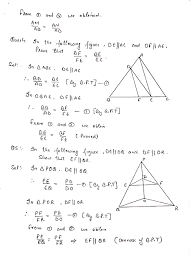 From ① and ② we obtained.
AM/AB = AN/AD
Ques4: In the following figure, DE||AC and DF||AE
Prove that BF/FE = BE/EC
Sol: In △ABC, DE||AC
∴ BD/DA = BE/EC - ① [By B.P.T]
In △ABE, DF||AE
∴ BD/DA = BF/FE - ② [By B.P.T]
From ① and ② we obtain
BE/EC = BF/FE (Proved)
Q5: In the following figure, DE||OQ and DF||OR,
Show that EF||QR.
Sol: In △POQ, DE||OQ
∴ PE/EQ = PD/DO - ① [By B.P.T]
In △POR, DF||OR
∴ PF/FR = PD/DO - ② [By B.P.T]
From ① and ② we obtain
PE/EQ = PF/FR ⇒ EF||QR (Converse of B.P.T)